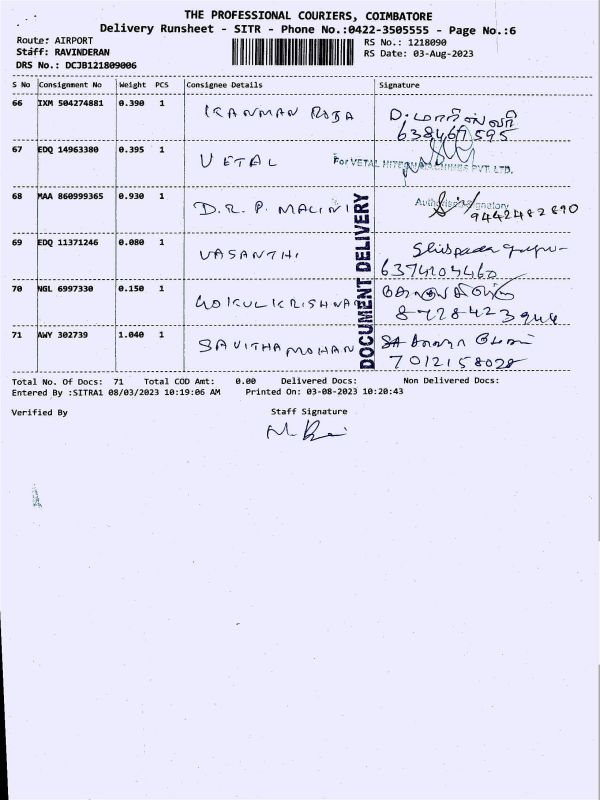 THE PROFESSIONAL COURIERS, COIMBATORE
Delivery Runsheet - SITR - Phone No.:0422-3505555 - Page No.:6
Route: AIRPORT
Staff: RAVINDERAN
DRS No.: DCJB121809006
RS No.: 1218090
RS Date: 03-Aug-2023
S No Consignment No Weight PCS Consignee Details Signature
66 IXM 504274881 0.390 1 KANMAN ROJA
67 EDQ 14963380 0.395 1 VETAL
For VETAL HITECH MACHINES PVT. LTD.
68 MAA 860999365 0.930 1 D.R.P. MALINI
Authorised Signatory
9442482890
69 EDQ 11371246 0.080 1 VASANTHI
70 NGL 6997330 0.150 1 GOKULKRISHNAN
71 AWY 302739 1.040 1 SAVITHA MOHAN
7012158028
DOCUMENT DELIVERY
Total No. Of Docs: 71 Total COD Amt: 0.00 Delivered Docs: Non Delivered Docs:
Entered By :SITRA1 08/03/2023 10:19:06 AM Printed On: 03-08-2023 10:20:43
Verified By Staff Signature